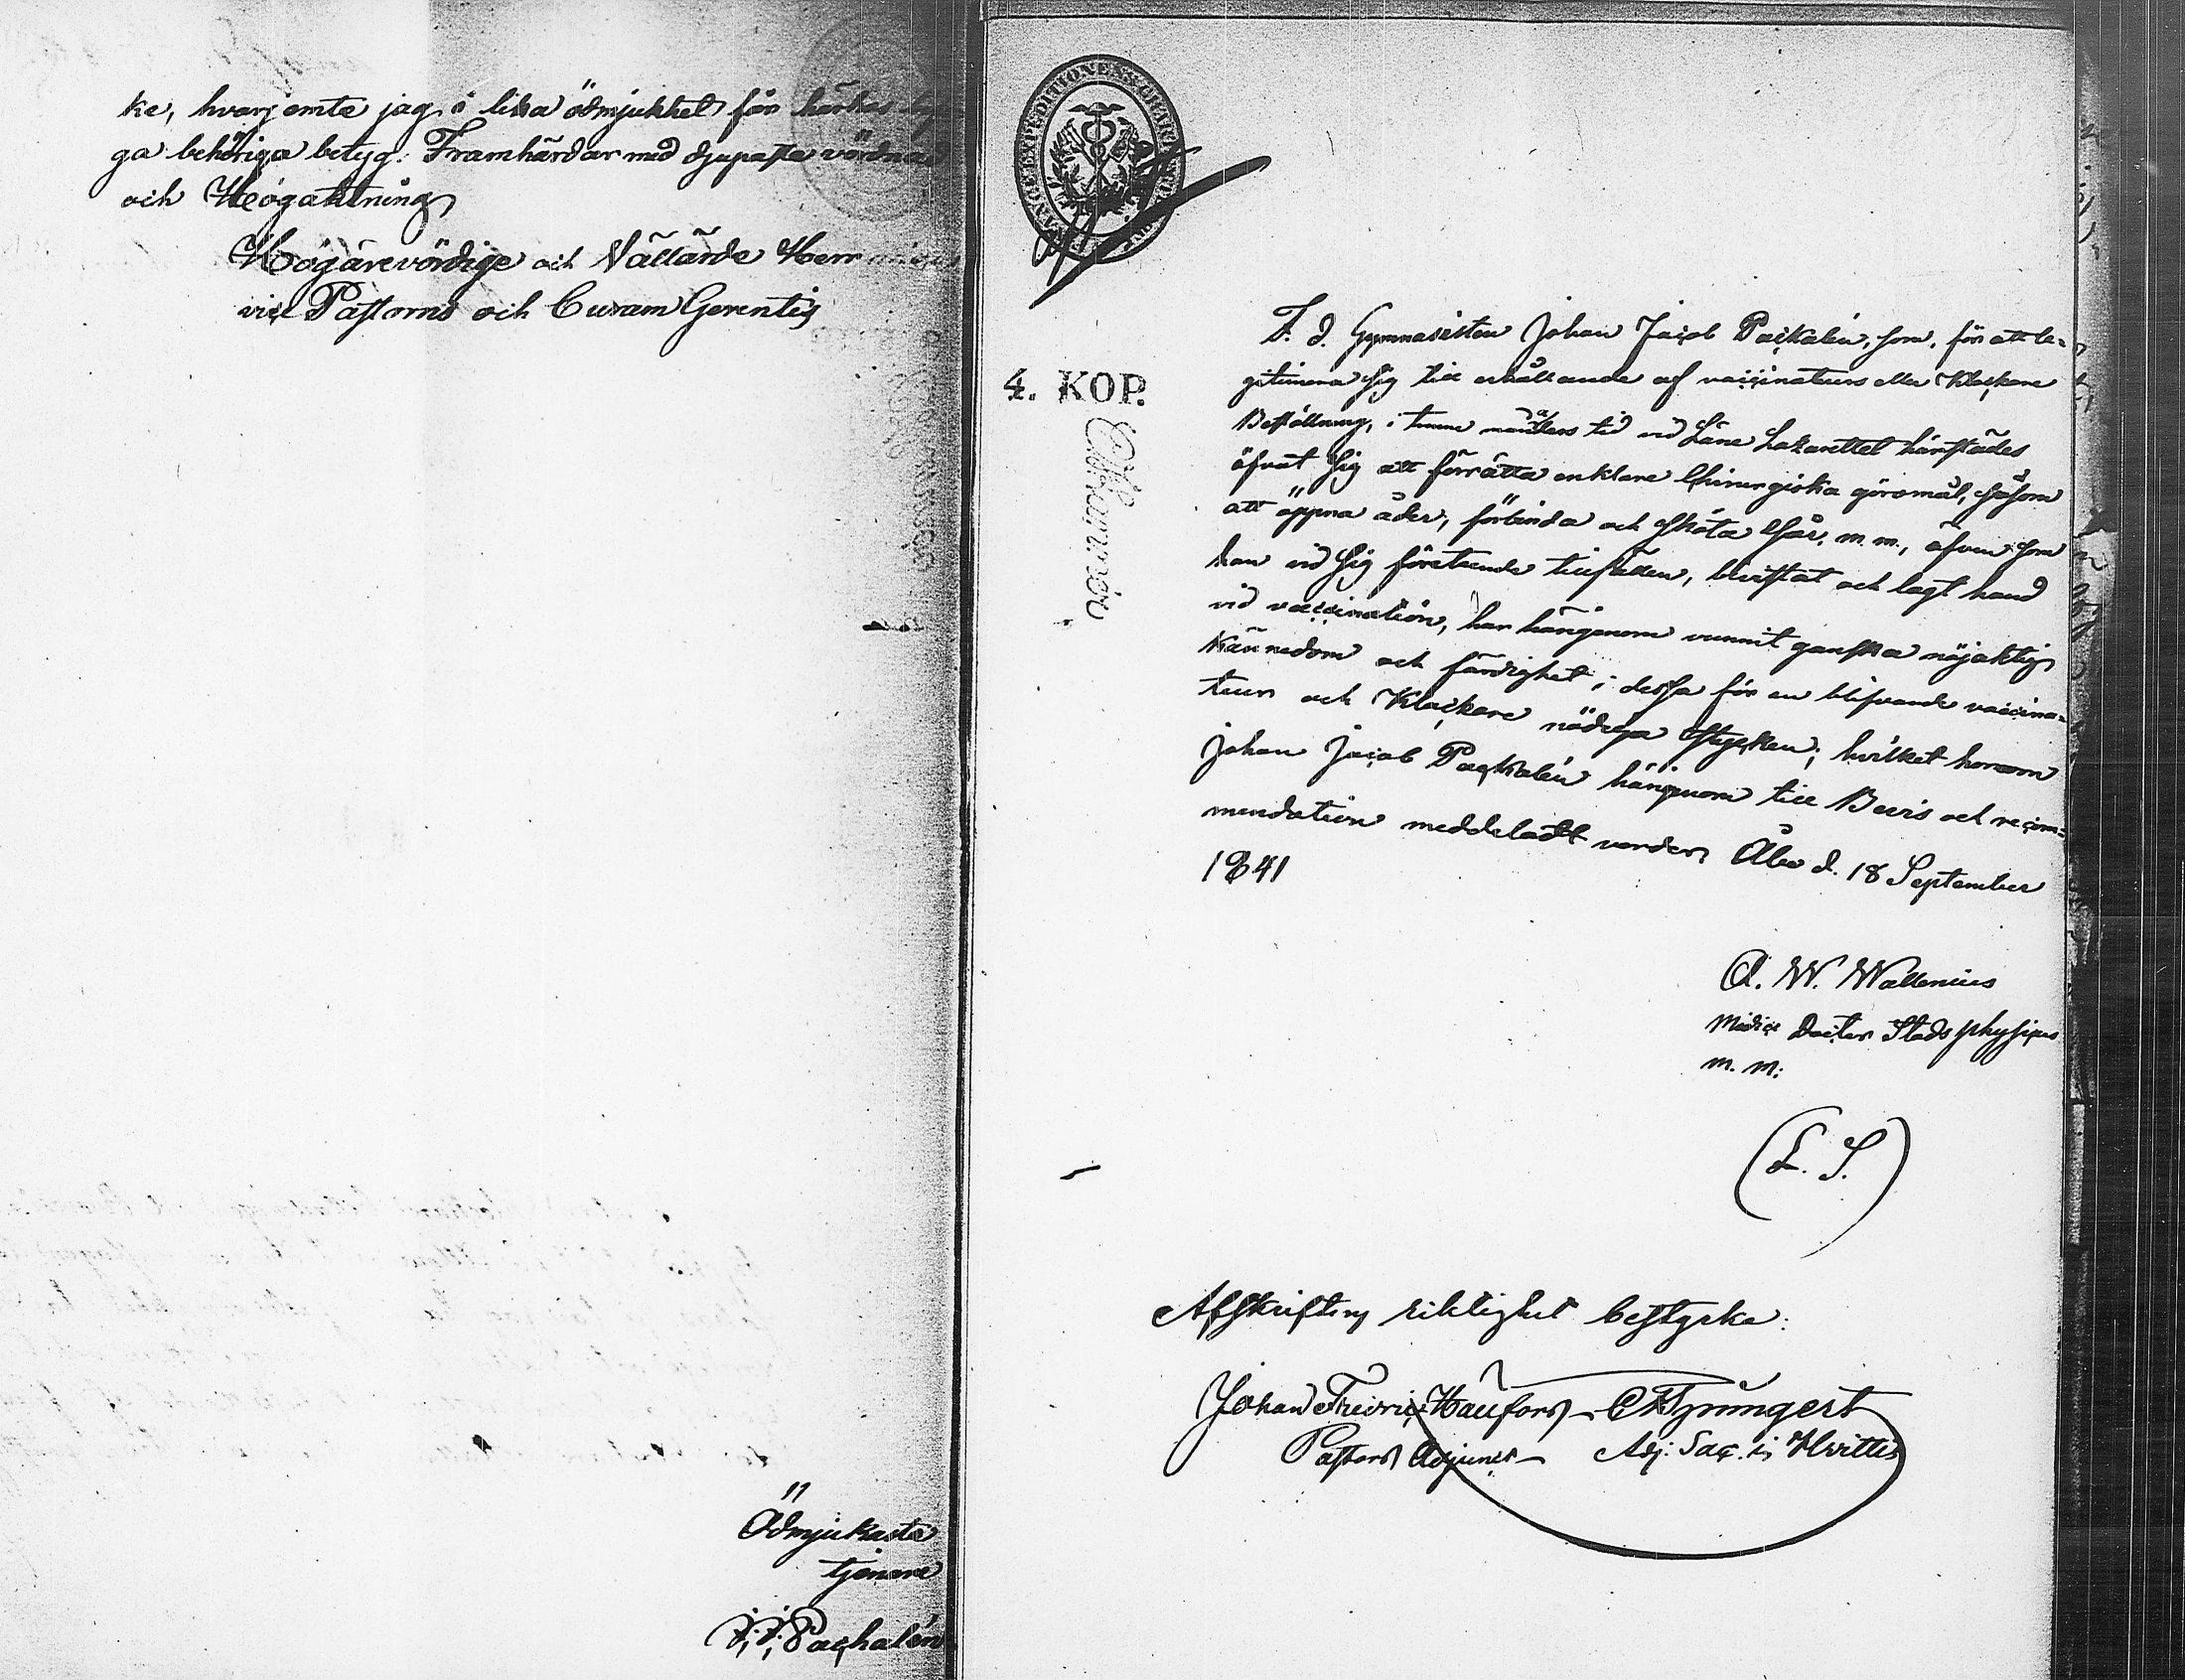 ke, hvarjemte jag i lika ödmjukhet får härhos
ga behöriga betyg. Framhärdar med djupaste vördnad
och Högaktning
Högärevördige och Vällärde Herr
vice Pastorns och Curam Gerentis
Ödmjukaste
tjenare
J. J. Packalén
4. KOP.
F. d. Gymnasisten Johan Jacob Packalén, som, för att le-
gitimera sig till erhållande af vaccinateurs eller Klockare
Beställning, i tvenne tid vid Läne Lazarettet härstädes
öfvat sig att förrätta enklare Chirurgiska göromål, såsom
att öppna åder, förbinda och sköta sår, m. m., äfven som
han vid sig företeende tillfällen, bevistat och lagt hand
vid vaccination, har härigenom vunnit ganska nöjaktig
kännedom och färdighet i dessa för en blifvande vaccina-
teur och Klockare nödiga stycken; hvilket honom
Johan Jacob Packalén härigenom till Bevis och recom-
mendation meddeladt varder, Åbo d. 18 September
1841
A. W. Wallenius
Medicæ Doctor Stadsphysicus
m. m:
(L. S.)
Afskriftens riktighet bestyrka:
Johan Fredric Haufors
Pastors Adjunct - Adj: Sac. i Hvittis